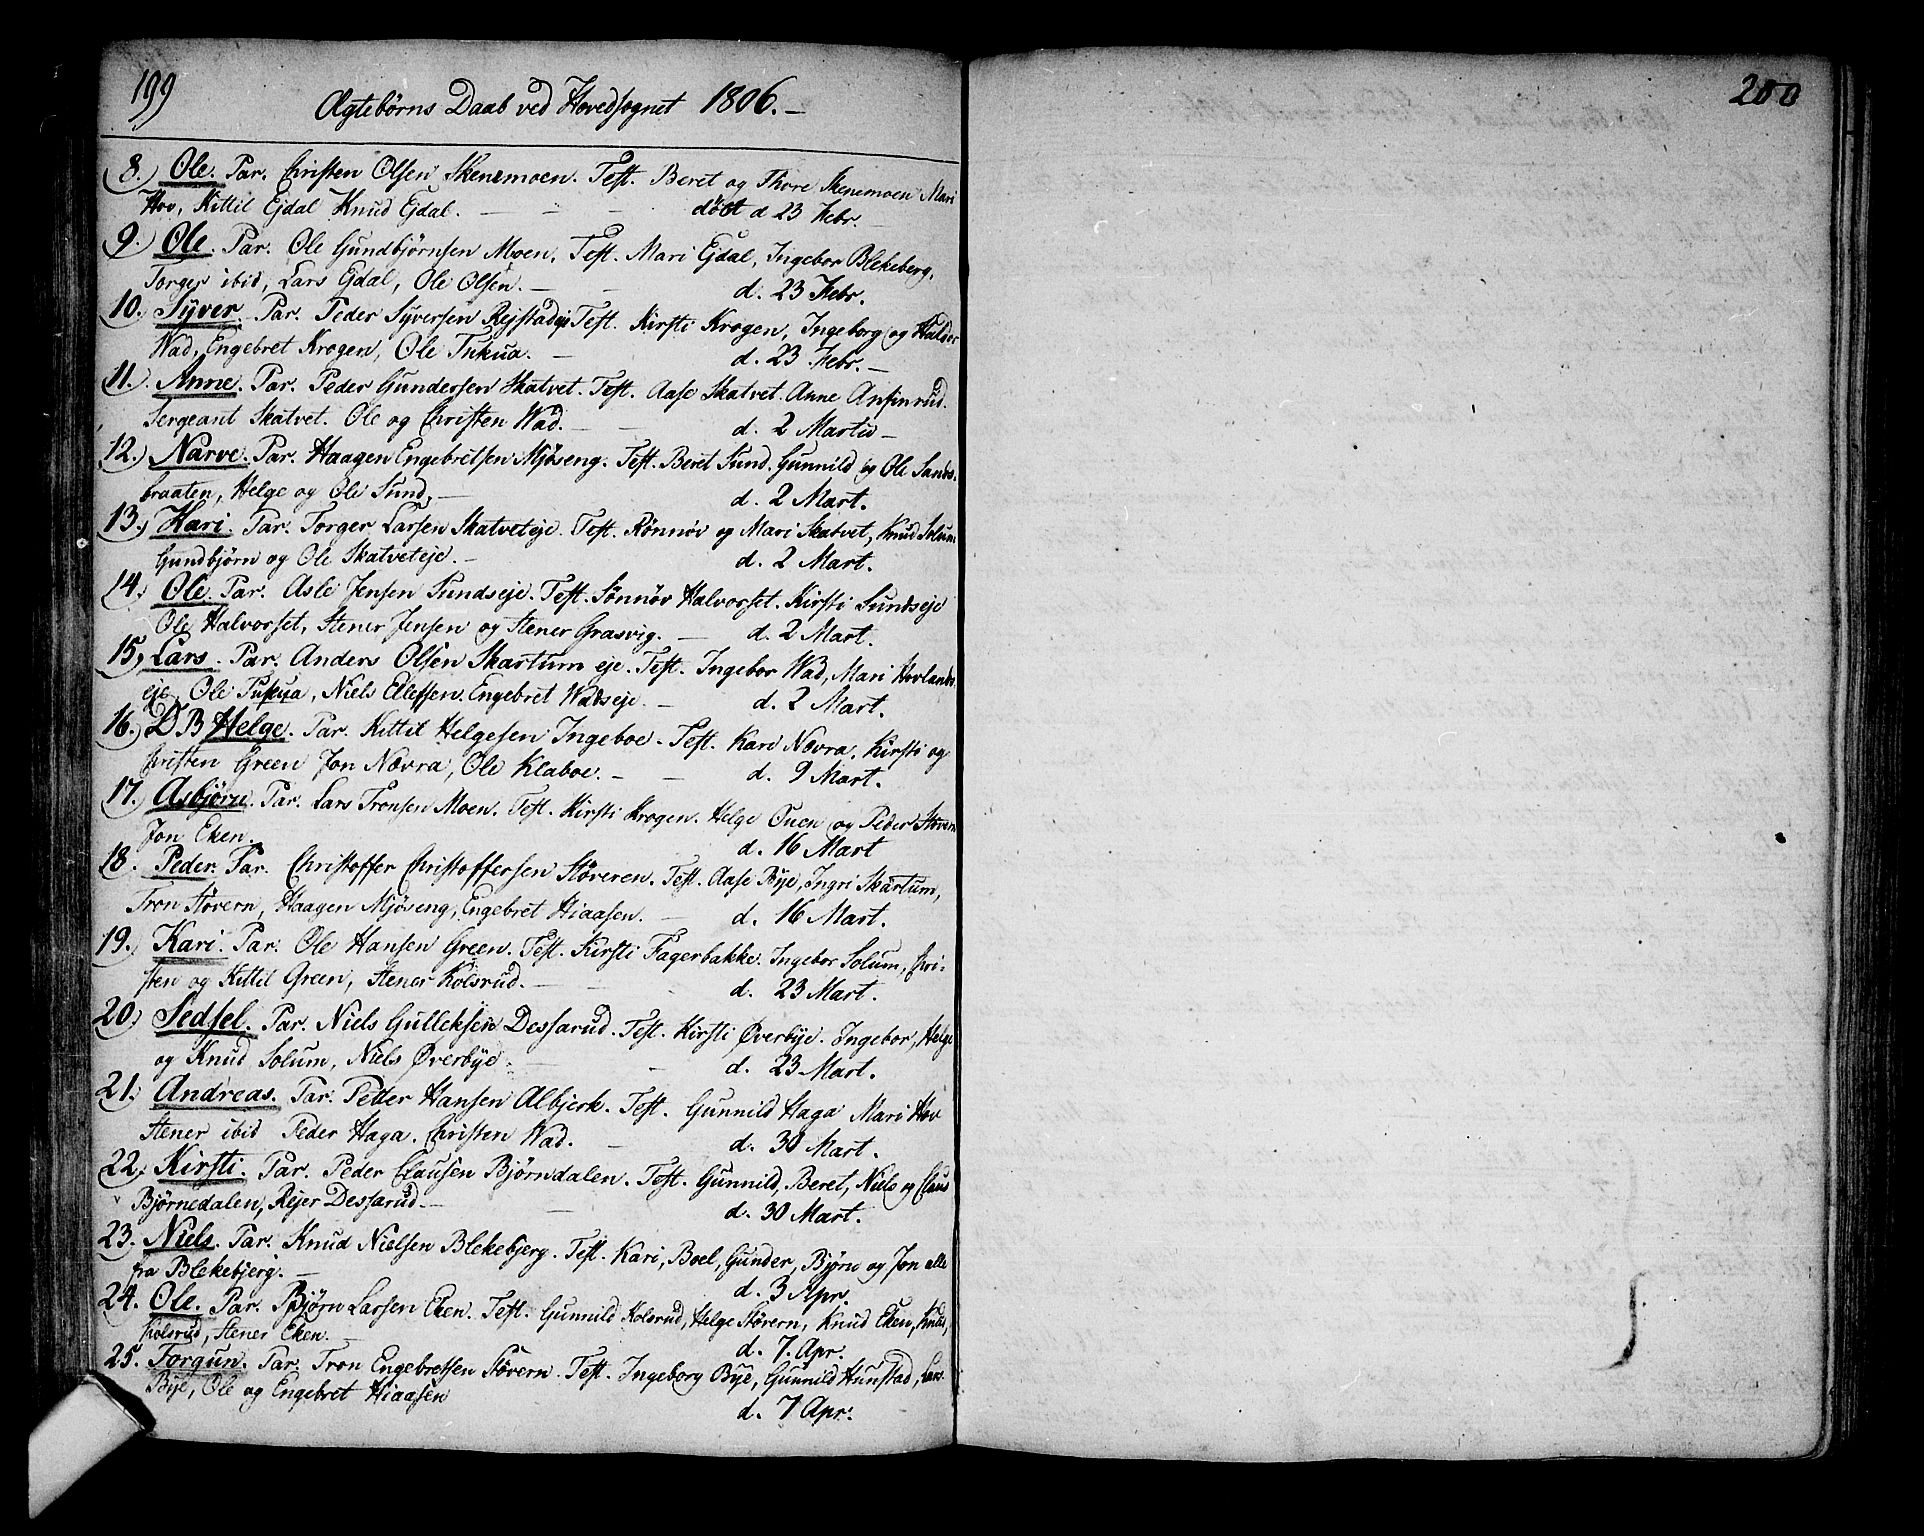 199
Ægtebørns Daab ved Hovedsognet 1806. –
200
8.) Ole. Par. Christen Olsen Skenemoen. Test. Beret og Thore Skenemoen Mari
Hov, Kittil Ejdal Knud Ejdal. — — — døbt d 23 Febr.
9.) Ole. Par. Ole Gundbjørnsen Moen. Test. Mari Ejdal, Ingebor Blekeberg.
Torger ibid, Lars Ejdal, Ole Olsen. — — d. 23 Febr.
10. Syver. Par. Peder Syversen Rejstadeje Test. Kirsti Krogen, Ingeborg og Halvor
Wad, Engebret Krogen, Ole Tukua. — d. 23 Febr. —
11.) Anne. Par. Peder Gundersen Skatvet. Test. Aase Skatvet. Anne Anfinrud.
Sergeant Skatvet. Ole og Christen Wad. — — d. 2 Martii –
12.) Narve. Par. Haagen Engebretsen Mjøseng. Test. Beret Sund. Gunnild og Ole Sands-
braaten, Helge og Ole Sund, — d. 2 Mart.
13.) Kari. Par. Torger Larsen Skatveteje. Test. Rønnøv og Mari Skatvet, Knud Solum
Gundbjørn og Ole Skatveteje. — d. 2 Mart.
14.) Ole. Par. Asle Jensen Sundseje. Test. Sønnøv Halvorset. Kirsti Sundseje
Ole Halvorset, Stener Jensen og Stener Grasvig. — d. 2 Mart.
15, Lars. Par. Anders Olsen Skartum eje. Test. Ingebor Wad, Mari Hovlands
eje, Ole Tukua, Niels Ellefsen. Engebret Wadseje. — d. 2 Mart.
16.) DB Helge. Par. Kittil Helgesen Ingeboe. Test. Kari Nævra. Kirsti og
Christen Green Jon Nævra, Ole Klaboe. — — d. 9 Mart.
17.) Asbjørn. Par. Lars Tronsen Moen. Test. Kirsti Krogen. Helge Ouen og Peder Støvern
Jon Eken. d. 16 Mart
18. Peder. Par. Christoffer Christoffersen Støveren. Test. Aase Bye, Ingri Skartum,
Tron Støvern, Haagen Mjøseng, Engebret Hiaasen. — d. 16 Mart.
19.) Kari. Par. Ole Hansen Green. Test. Kirsti Fagerbakke. Ingebor Solum, Chri-
sten og Kittil Green, Stener Kolsrud. — — — d. 23 Mart.
20.) Sedsel. Par. Niels Gulleksen Dessarud. Test. Kirsti Øverbye. Ingebor, Helge
og Knud Solum, Niels Øverbye. — — d. 23 Mart.
21.) Andreas. Par. Peder Hansen Albjerk. Test. Gunnild Haga Mari Hov
Stener ibid Peder Haga. Christen Wad. — d. 30 Mart.
22.) Kirsti. Par. Peder Clausen Bjørndalen. Test. Gunnild, Beret, Niels og Claus
Bjørnedalen, Rejer Dessarud. — — d. 30 Mart.
23. Niels. Par. Knud Nielsen Blekebjerg. Test. Kari, Boel, Gunder, Bjørn og Jon alle
fra Blekebjerg. — d. 3 Apr.
24. Ole. Par. Bjørn Larsen Eken. Test. Gunnild Kolsrud, Helge Støvern, Knud Eken,
Kolsrud, Stener Eken. — d. 7. Apr.
25. Torgun. Par. Tron Engebretsen Støvern. Test. Ingeborg Bye, Gunnild Hunstad, Lars
Bye, Ole og Engebret Hiaasen d. 7 Apr.